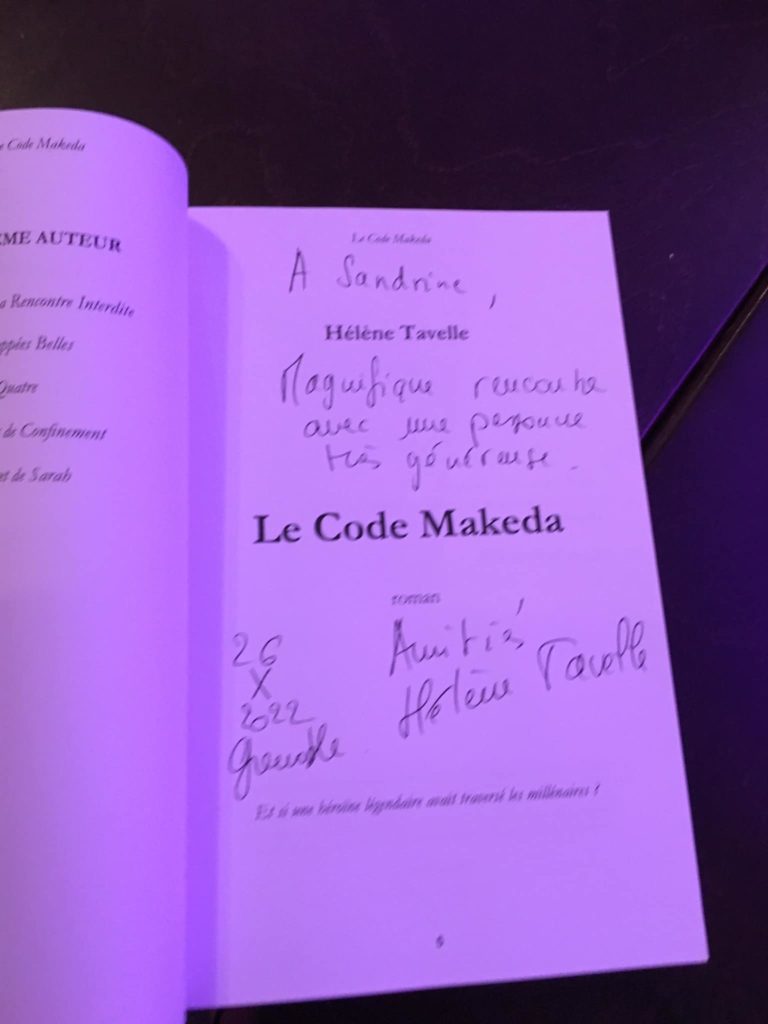 e Code Makeda
ME AUTEUR
a Rencontre Interdite
ppées Belles
Quatre
de Confinement
et de Sarah
Le Code Makeda
A Sandrine,
Hélène Tavelle
Magnifique rencontre
avec une personne
très généreuse.
Le Code Makeda
roman
Amitiés,
Hélène Tavelle
26
X
2022
Grenoble
Et si une héroïne légendaire avait traversé les millénaires ?